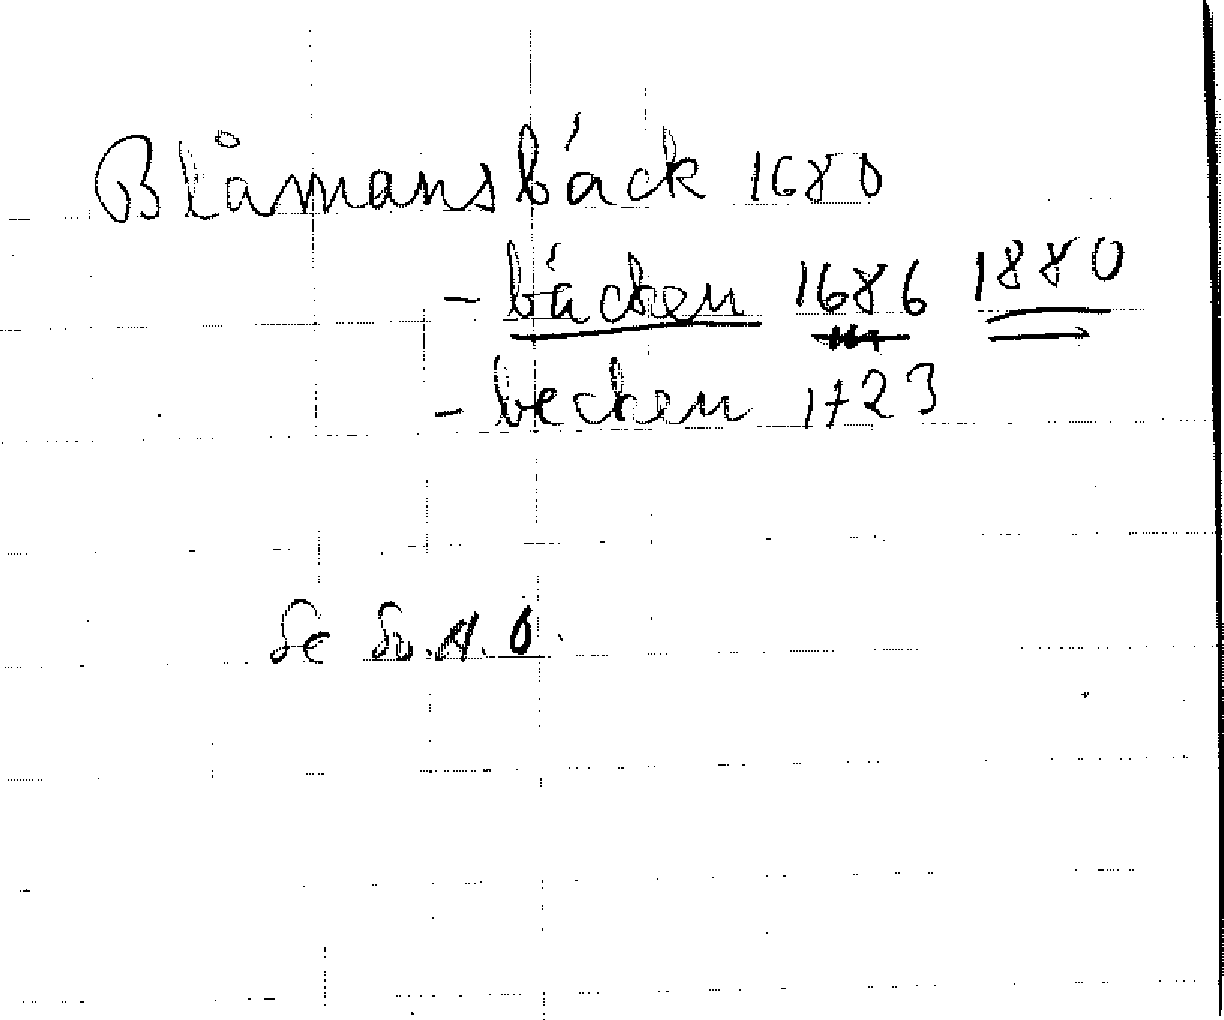 Blåmansbäck 1680
- bäcken 1686 1880
- becken 1723
Se Sv.